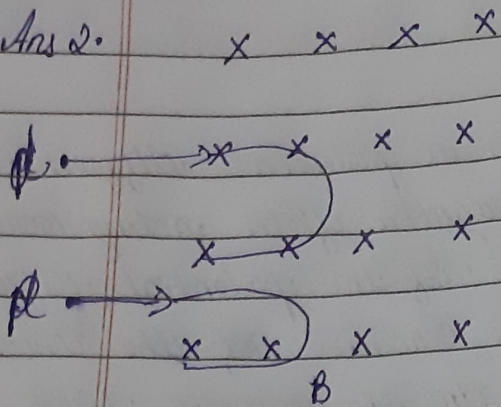 Ans 2. x x x x
x x x x
x x x x
x x x x
B